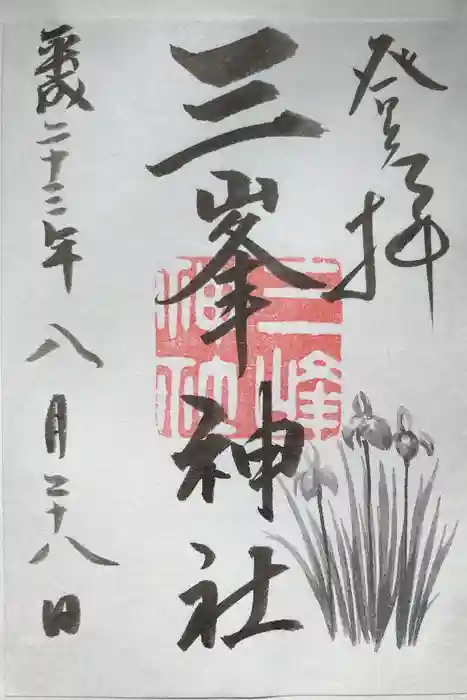 登拝
三峯神社
三峰神社
平成二十三年八月二十八日